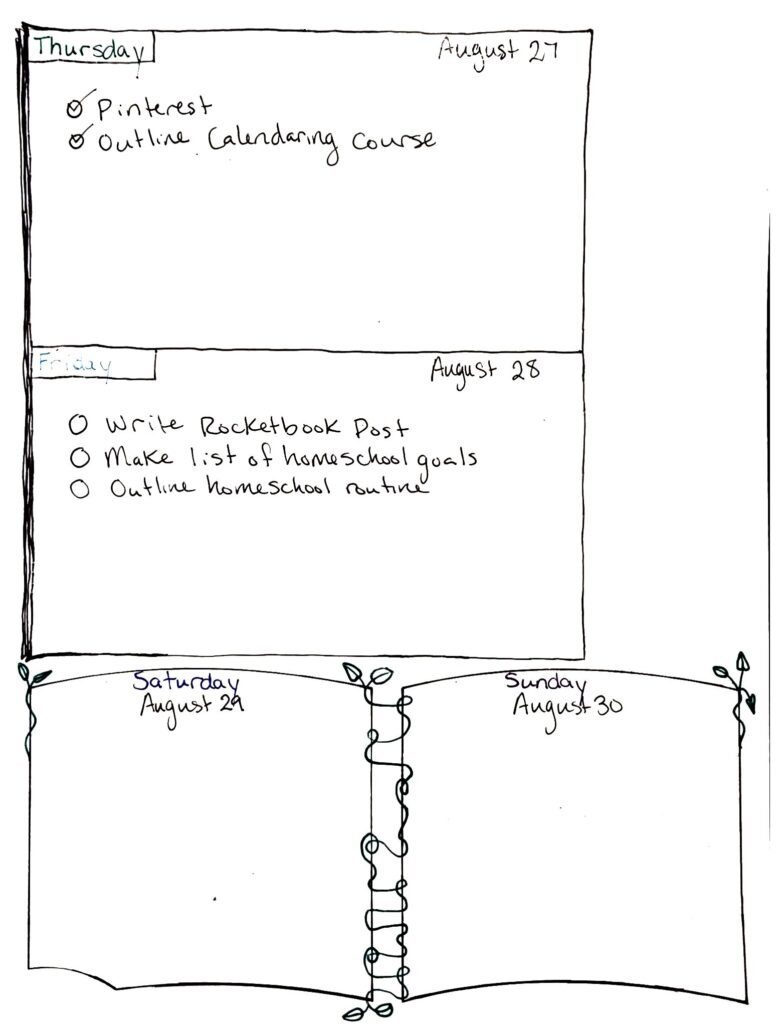 Thursday
August 27
Pinterest
Outline Calendaring Course
Friday
August 28
Write Rocketbook Post
Make list of homeschool goals
Outline homeschool routine
Saturday
August 29
Sunday
August 30